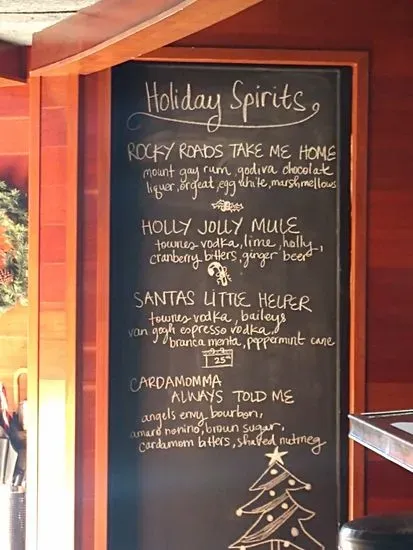 Holiday Spirits
ROCKY ROADS TAKE ME HOME
mount gay rum, godiva chocolate
liquer, orgeat, egg white, marshmellows
HOLLY JOLLY MULE
townes vodka, lime, holly,
cranberry bitters, ginger beer
SANTAS LITTLE HELPER
townes vodka, baileys
van gogh espresso vodka,
branca menta, peppermint cane
25
CARDAMOMMA
ALWAYS TOLD ME
angels envy bourbon,
amaro nonino, brown sugar,
cardamom bitters, shaved nutmeg